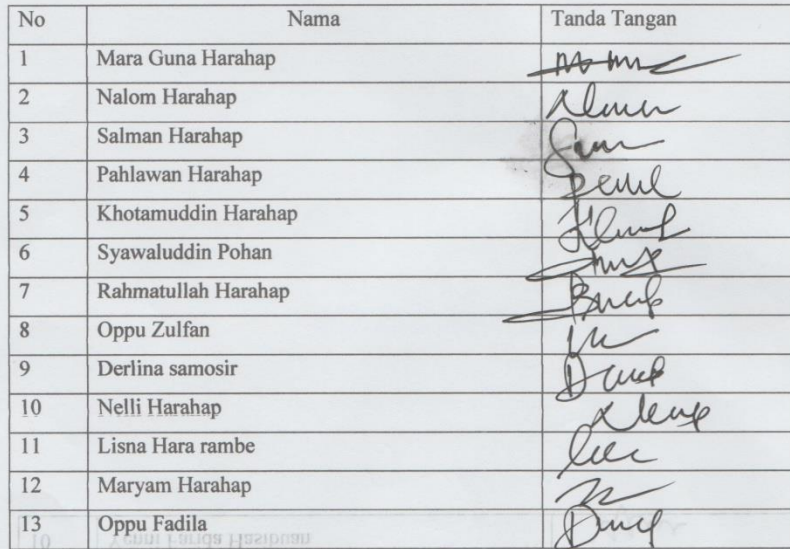 No Nama Tanda Tangan
1 Mara Guna Harahap
2 Nalom Harahap
3 Salman Harahap
4 Pahlawan Harahap
5 Khotamuddin Harahap
6 Syawaluddin Pohan
7 Rahmatullah Harahap
8 Oppu Zulfan
9 Derlina samosir
10 Nelli Harahap
11 Lisna Hara rambe
12 Maryam Harahap
13 Oppu Fadila
10 Yenni Farida Hasibuan